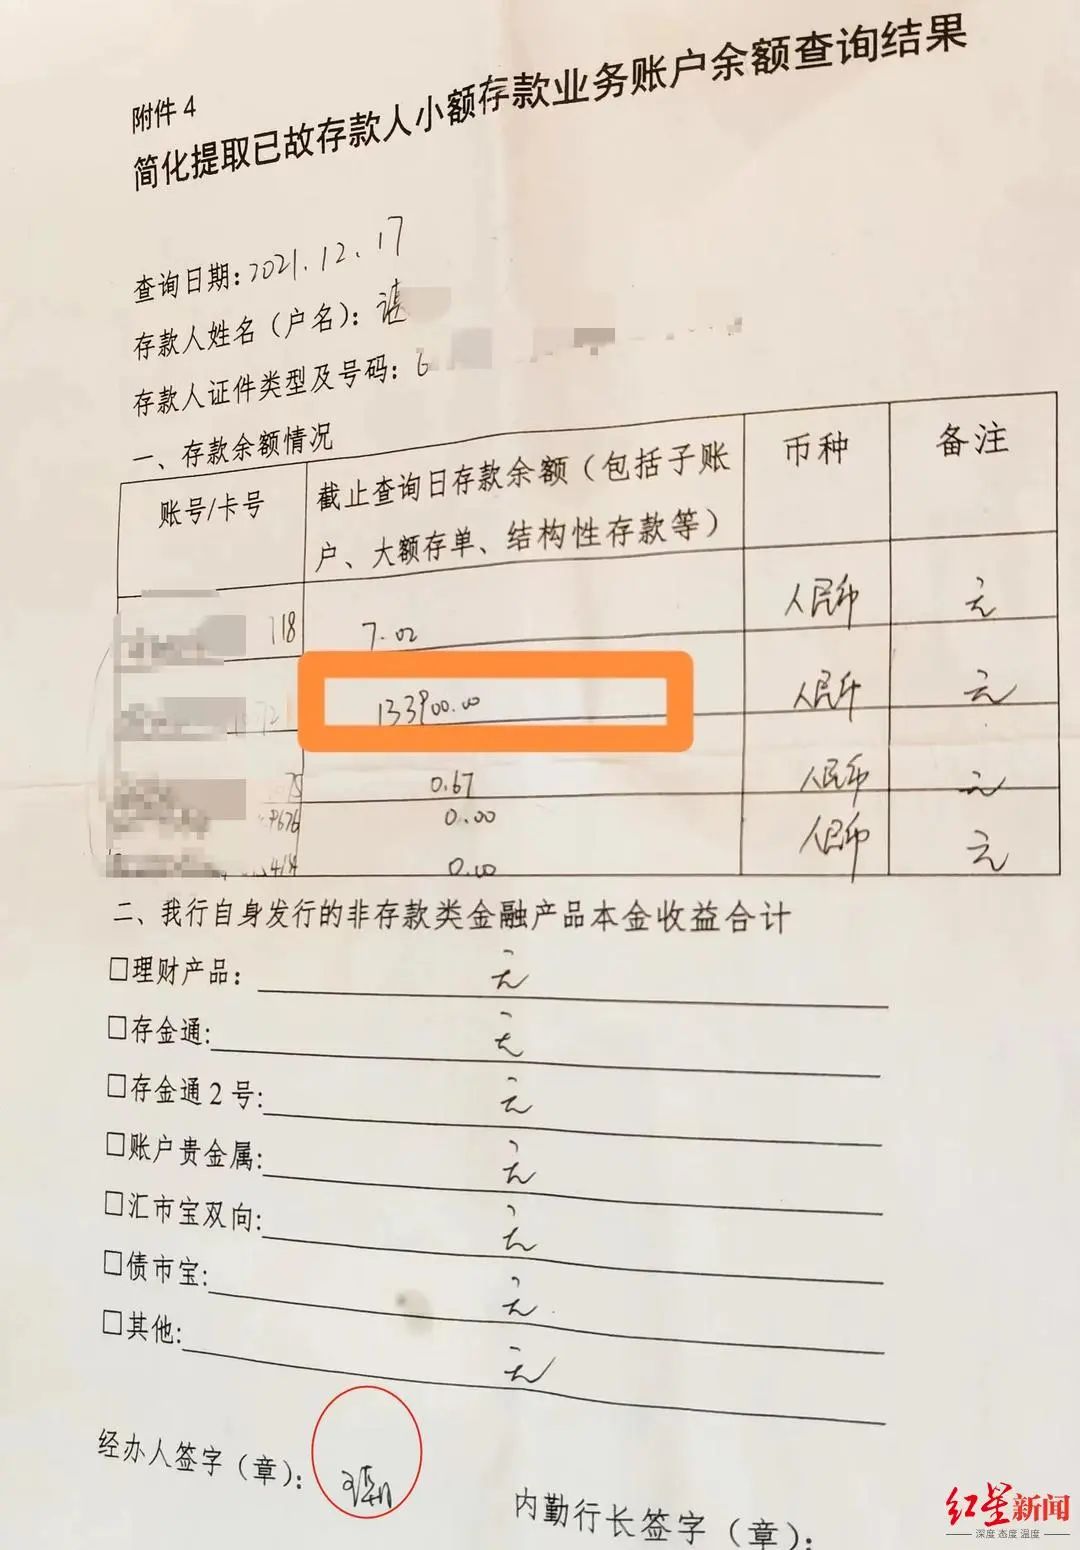 附件4
简化提取已故存款人小额存款业务账户余额查询结果
查询日期:2021.12.17
存款人姓名（户名）：谌
存款人证件类型及号码：6
一、存款余额情况
账号/卡号 截止查询日存款余额（包括子账户、大额存单、结构性存款等） 币种 备注
118 7.02 人民币 元
133900.00 人民币 元
75 0.67 人民币 元
9676 0.00 人民币 元
414 0.00
二、我行自身发行的非存款类金融产品本金收益合计
□理财产品：
□存金通:
□存金通2号:
□账户贵金属:
□汇市宝双向:
□债市宝:
□其他:
经办人签字（章）：
内勤行长签字（章）：
红星新闻
深度 态度 温度